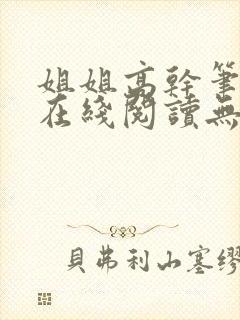 姐姐高幹筆
在綫閱讀無
貝弗利山塞繆